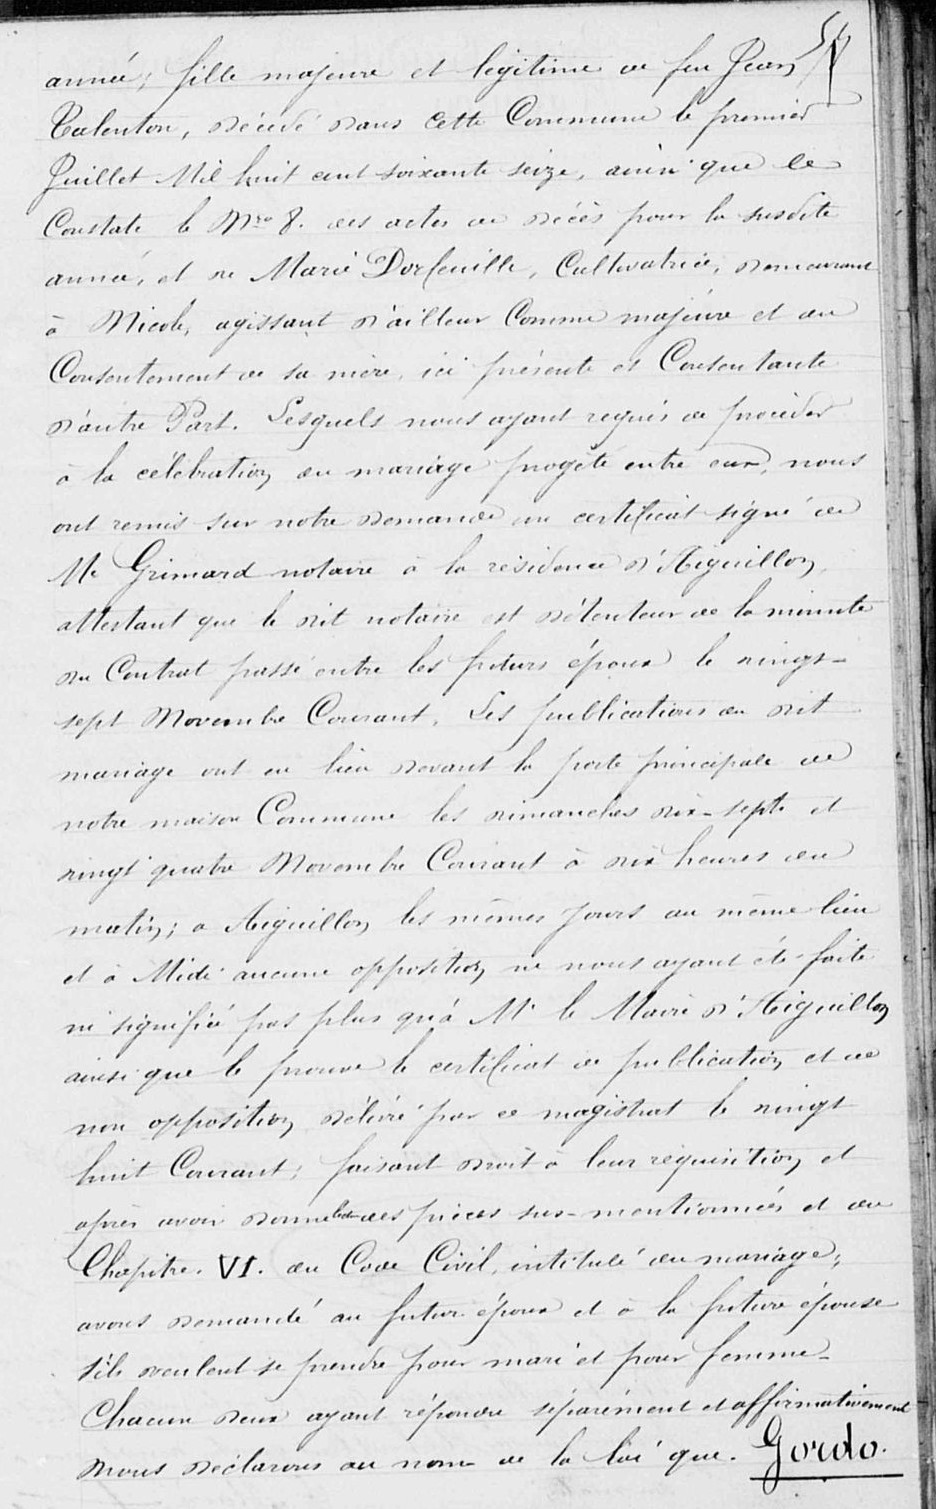 année; fille majeure et légitime de feu Jean
Talenton, décédé dans cette Commune le premier
Juillet Mil huit cent soixante seize, ainsi que le
Constate le Nro 8. des actes de décès pour la susdite
année, et de Marie Dorfeuille, Cultivatrice, demeurant
à Nicole, agissant d'ailleur Comme majeure et du
Consentement de sa mère, ici présente et Consentante
d'autre Part. Lesquels nous ayant requis de procéder
à la célébration du mariage progété entre eux, nous
ont remis sur notre demande un certificat signé de
Me Grimard notaire à la résidence d'Aiguillon,
attestant que le dit notaire est détenteur de la minute
du Contrat passé entre les futurs époux le vingt-
sept Novembre Courant. Les publications du dit
mariage ont eu lieu devant la porte principale de
notre maison Commune les dimanches dix-sept et
vingt quatre Novembre Courant à dix heures du
matin; a Aiguillon les mêmes jours au même lieu
et à Midi aucune opposition ne nous ayant été faite
ni signifié pas plus qu'à Mr le Maire d'Aiguillon
ainsi que le prouve le certificat de publication et de
non opposition délivré par ce magistrat le vingt
huit Courant; faisant droit à leur réquisition et
après avoir donné lect des pièces sus-mentionnées et du
Chapitre. VI. du Code Civil, intitulé du mariage;
avons demandé au futur époux et à la future épouse
s'ils veulent se prendre pour mari et pour femme-
Chacun deux ayant répondu séparément et affirmativement
nous déclarons au nom de la loi que. Gordo.